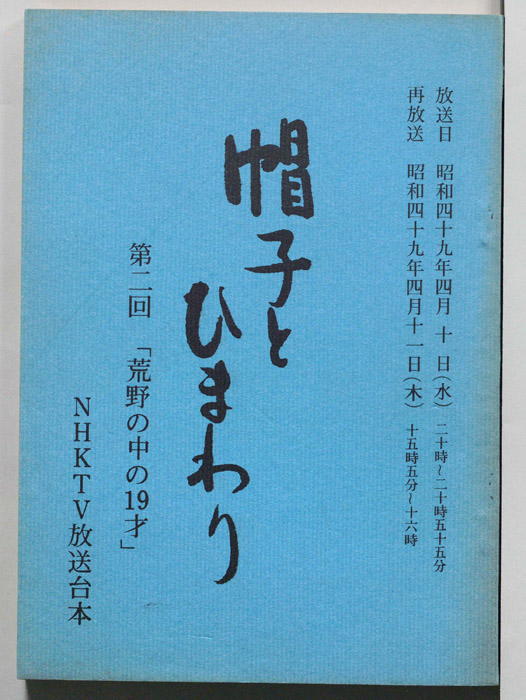 放送日　昭和四十九年四月　十　日（水）　二十時～二十時五十五分
再放送　昭和四十九年四月十一日（木）　十五時五分～十六時
帽子と
ひまわり
第二回　「荒野の中の19才」
ＮＨＫＴＶ放送台本